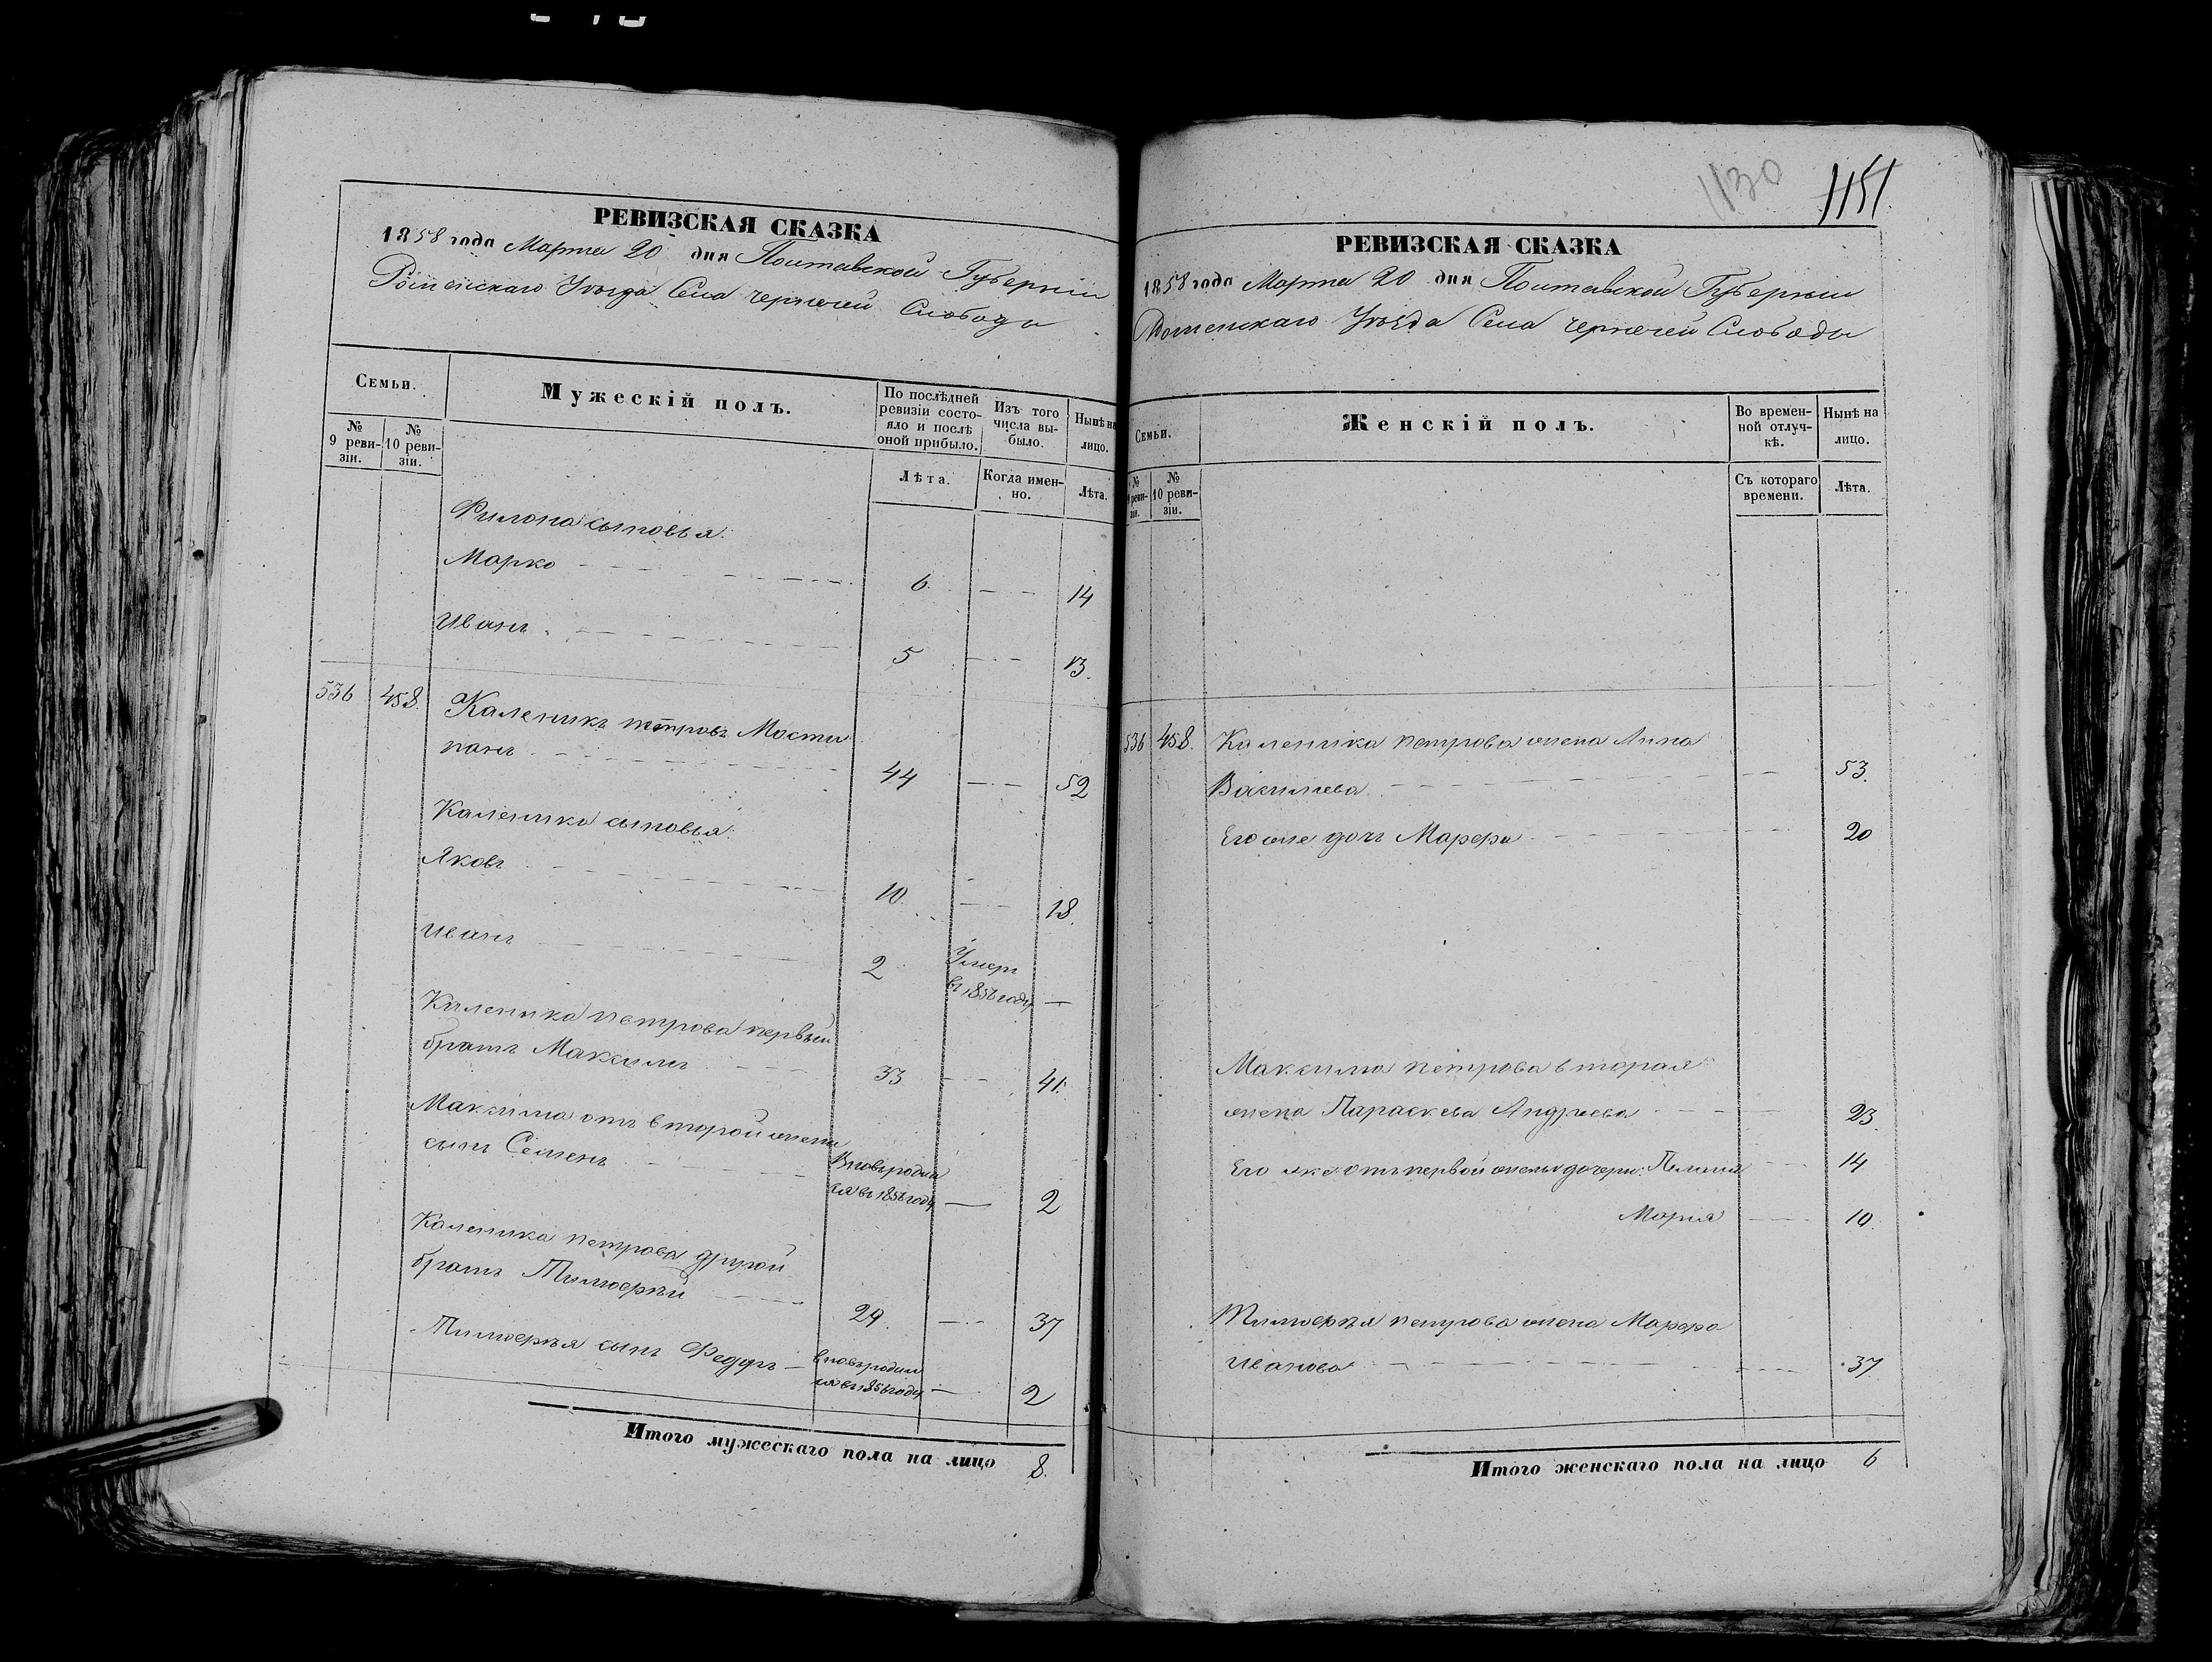 РЕВИЗСКАЯ СКАЗКА
1858 года Марта 20 дня Полтавской Губерніи
Роменскаго Уѣзда Села Чернечей Слободы
Семьи.
Мужескій полъ.
По послѣдней ревизіи состо-
яло и послѣ
оной прибыло.
Изъ того
числа вы-
было.
Нынѣ на
лицо.
№
9 реви-
зіи.
№
10 реви-
зіи.
Лѣта.
Когда имен-
но.
Лѣта.
Филона сыновья:
Марко 6. 14
Иванъ 5 13.
536 458. Каленикъ Петровъ Мости
панъ 44 52
Каленика сыновья:
Яковъ 10. 18.
Иванъ 2 Умеръ
въ 1856 году
Каленика Петрова первый
братъ Максимъ 33 41.
Максима отъ второй жены
сынъ Семенъ Вновьродил
ся въ 1856 году 2
Каленика Петрова другой
братъ Тимофей 29. 37
Тимофея сынъ Федоръ вновьродил
ся въ 1856 году 2
Итого мужескаго пола на лицо 8.
1130 1151
РЕВИЗСКАЯ СКАЗКА
1858 года Марта 20 дня Полтавской Губерніи
Роменскаго Уѣзда Села Чернечей Слободы
Семьи.
Женскій полъ.
Во времен-
ной отлуч-
кѣ.
Нынѣ на
лицо.
№
9 реви-
зіи.
№
10 реви-
зіи.
Съ котораго
времени.
Лѣта.
536 458. Каленика Петрова жена Анна
Васильева 53.
Его же дочь Марфа 20
Максима Петрова вторая
жена Параскева Андреева 23.
Его же отъ первой жены дочери: 14
Марія 10.
Тимофея Петрова жена Марфа
Иванова 37
Итого женскаго пола на лицо 6